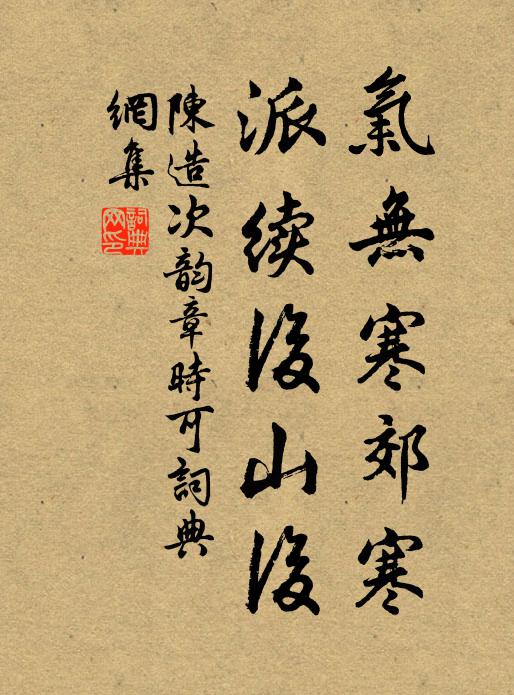 氣無寒郊寒
派續後山後
陳造次韵章時可詞典
網集
詞典網印